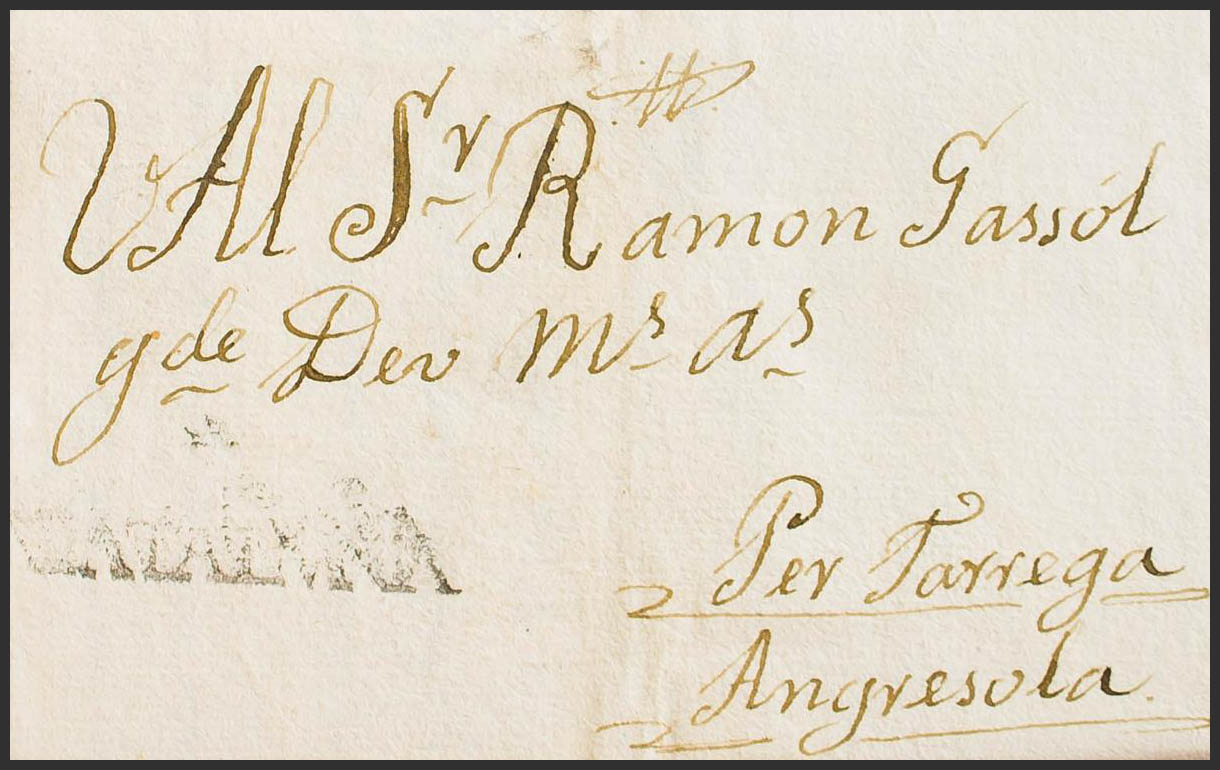 Al Sr Ramon Gassól
gde Dev ms as
CATALUÑA
Per Tarrega
Angresola